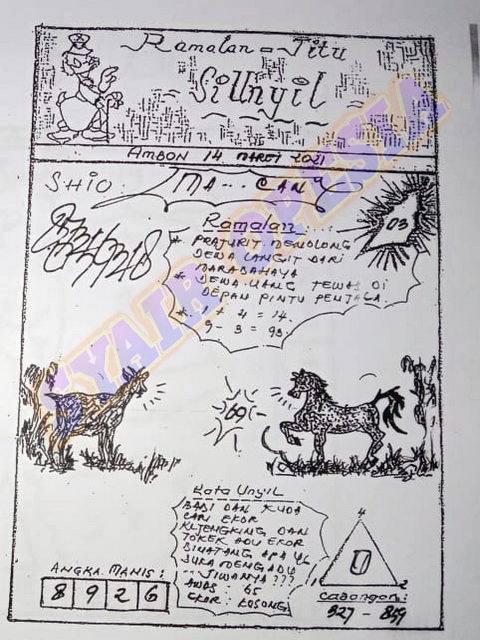 Ramalan - Jitu
Si Unyil
AMBON 14 MARET 2021
SHIO
MA .. CAN
03
Ramalan
* PRAJURIT MENOLONG
DEWA LANGIT DARI
MARABAHAYA
* DEWA UANG TEWAS DI
DEPAN PINTU PENJAGA.
* 1 + 4 = 14.
9 - 3 = 93.
60
Kata Unyil
BABI DAN KUDA
CARI EKOR
KLENGKING DAN
TOKEK ADU EKOR
BINATANG APA YG
SUKA MENGADU
JIWANYA ???
AWAS : 65
EKOR : KOSONG
ANGKA MANIS :
8 9 2 6
4
0
1 2
Cabangan :
327 - 849
SYAIR OPESIA